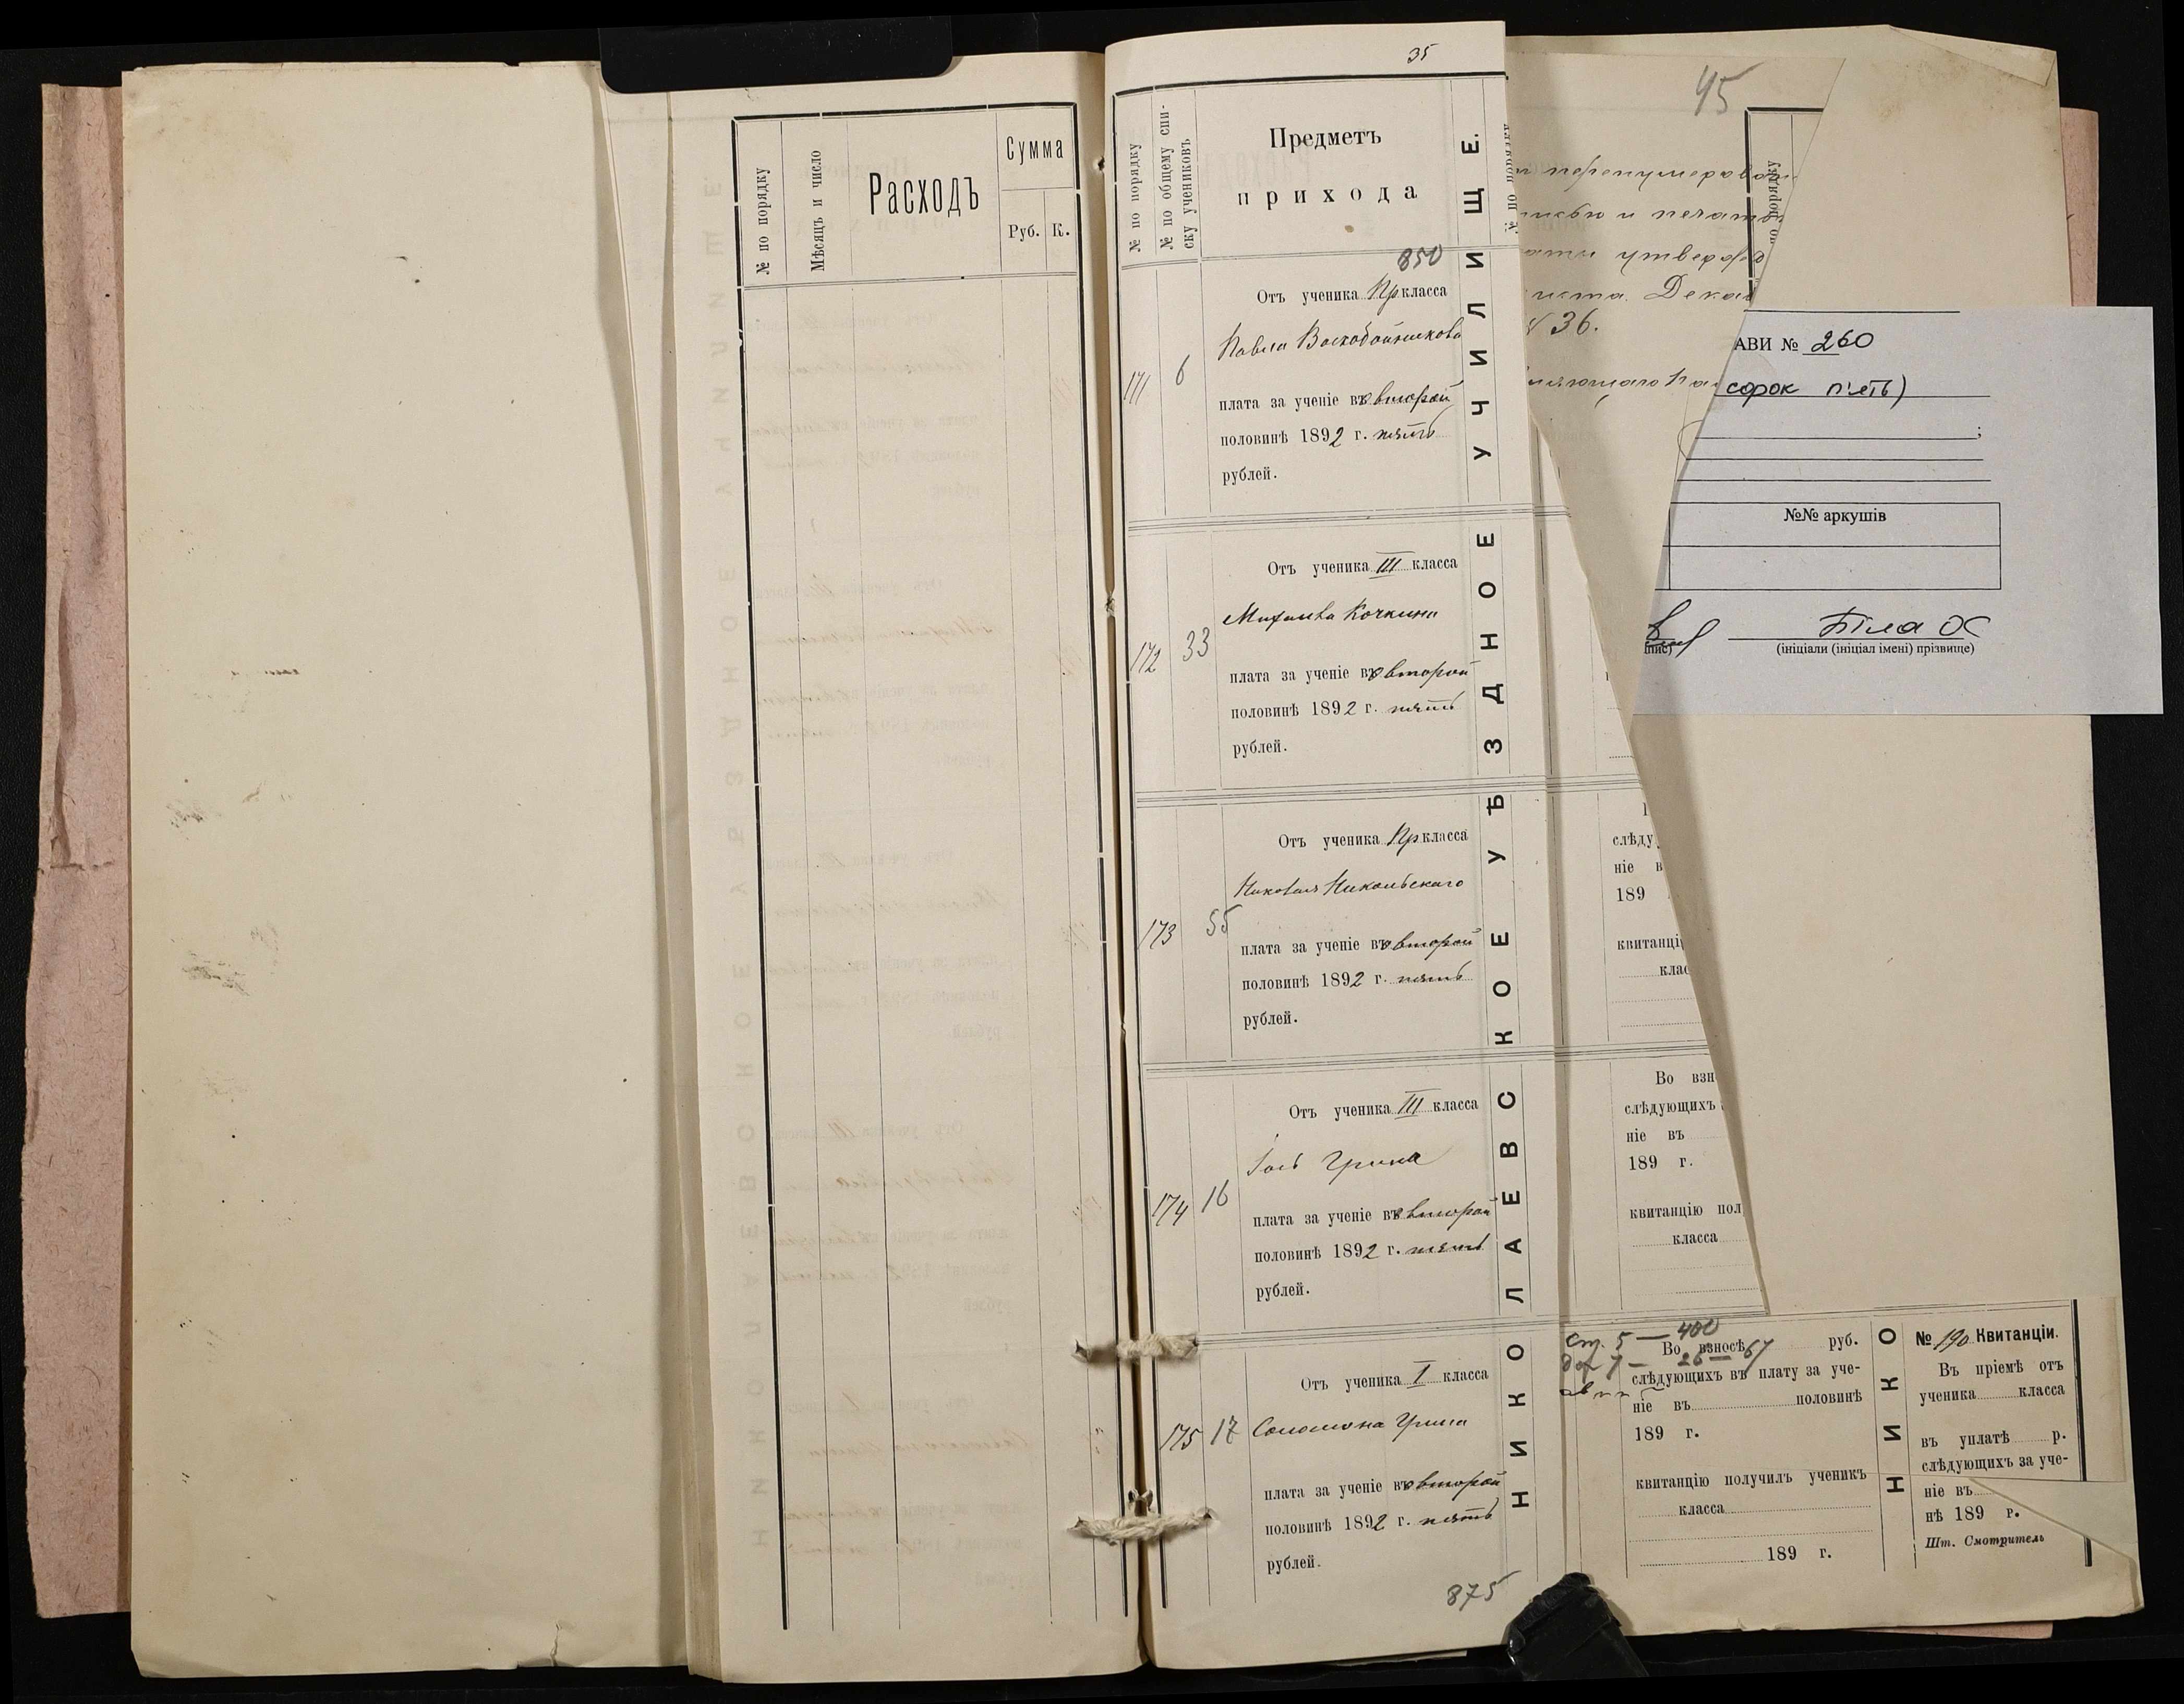 № по порядку
Мѣсяцъ и число
Расходъ
Сумма
Руб. К.
35
№ по порядку
№ по общему спи-
ску учениковъ
Предметъ
прихода
850
171
6
Отъ ученика Пр класса
Павла Воскобойникова
плата за ученіе во второй
половинѣ 1892 г. пять
рублей.
172
33
Отъ ученика III класса
Михаила Кочкина
плата за ученіе во второй
половинѣ 1892 г. пять
рублей.
173
55
Отъ ученика Пр класса
Николая Никольскаго
плата за ученіе во второй
половинѣ 1892 г. пять
рублей.
174
16
Отъ ученика III класса
плата за ученіе во второй
половинѣ 1892 г. пять
рублей.
175
17
Отъ ученика I класса
Соломона Грина
плата за ученіе во второй
половинѣ 1892 г. пять
рублей.
875
НИКОЛАЕВСКОЕ УѢЗДНОЕ УЧИЛИЩЕ.
№ по порядку
45
по порядку
Дека
36.
АВИ № 260
сорок п'ять)
;
№№ аркушів
Біла ОС
(ініціали (ініціал імені) прізвище)
слѣду
ніе в
189
квитанці
клас
Во взн
слѣдующихъ
ніе въ
189 г.
квитанцію пол
класса
ст. 5 — 400
Во взносѣ руб.
7 — 26 — 67
слѣдующихъ въ плату за уче-
ніе въ половинѣ
189 г.
квитанцію получилъ ученикъ
класса
189 г.
НИКО
№ 190 Квитанціи.
Въ пріемѣ отъ
ученика класса
въ уплатѣ р.
слѣдующихъ за уче-
ніе въ
нѣ 189 г.
Шт. Смотритель